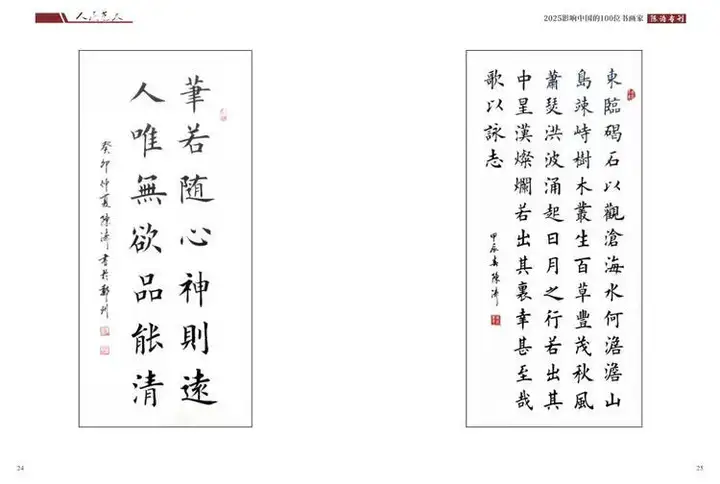 2025影响中国的100位书画家
筆若随心神則遠
人唯無欲品能清
癸卯仲夏陳書於鄭州
東臨碣石以觀滄海水何澹澹山
島竦峙樹木叢生百草豐茂秋風
蕭瑟洪波涌起日月之行若出其
中星漢燦爛若出其裏幸甚至哉
歌以詠志
甲辰春陳
24
25